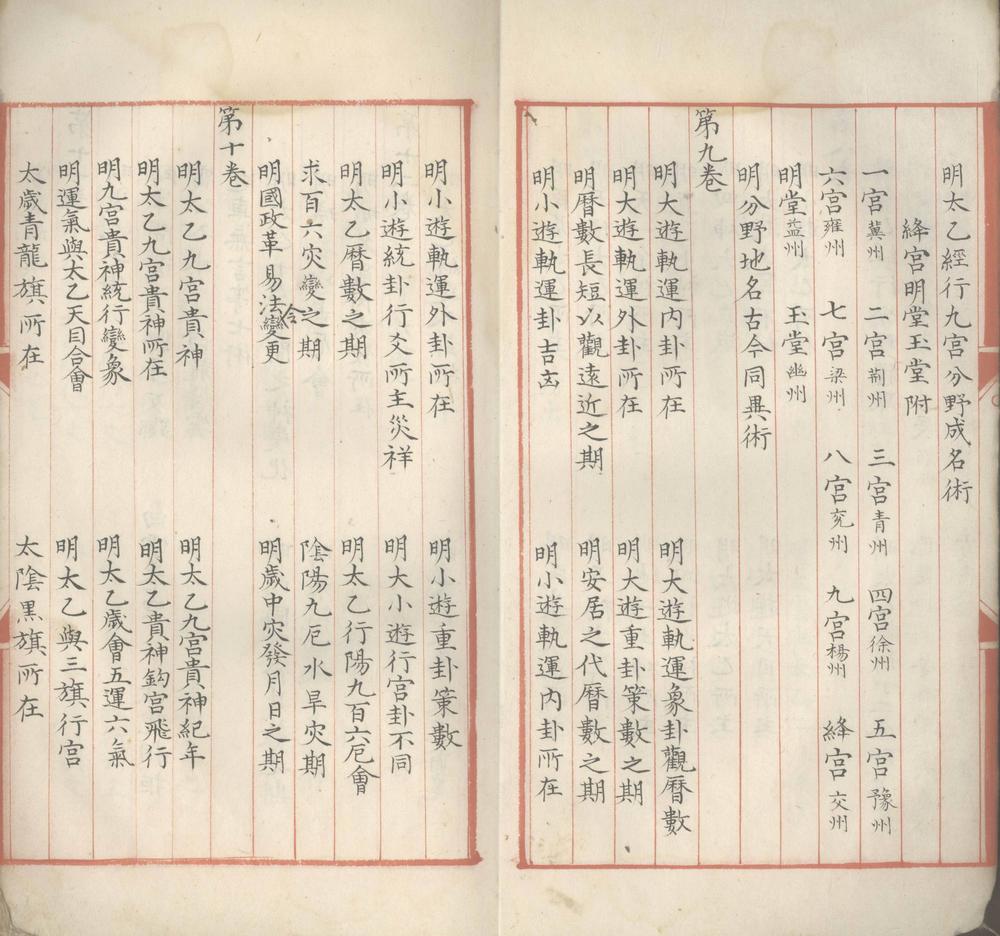 明太乙經行九宮分野成名術
絳宮明堂玉堂附
一宮冀州 二宮荊州 三宮青州 四宮徐州 五宮豫州
六宮雍州 七宮梁州 八宮兖州 九宮楊州 絳宮交州
明堂益州 玉堂幽州
明分野地名古今同異術
第九卷
明大遊軌運內卦所在 明大遊軌運象卦觀曆數
明大遊軌運外卦所在 明大遊重卦策數之期
明曆數長短以觀遠近之期 明安居之代曆數之期
明小遊軌運卦吉凶 明小遊軌運內卦所在
明小遊軌運外卦所在 明小遊重卦策數
明小遊統卦行爻所主災祥 明大小遊行宮卦不同
明太乙曆數之期 明太乙行陽九百六厄會
求百六災變之期 陰陽九厄水旱災期
明國政革易法令變更 明歲中災發月日之期
第十卷
明太乙九宮貴神 明太乙九宮貴神紀年
明太乙九宮貴神所在 明太乙貴神鈎宮飛行
明九宮貴神統行變象 明太乙歲會五運六氣
明運氣與太乙天目合會 明太乙與三旗行宮
太歲青龍旗所在 太陰黑旗所在